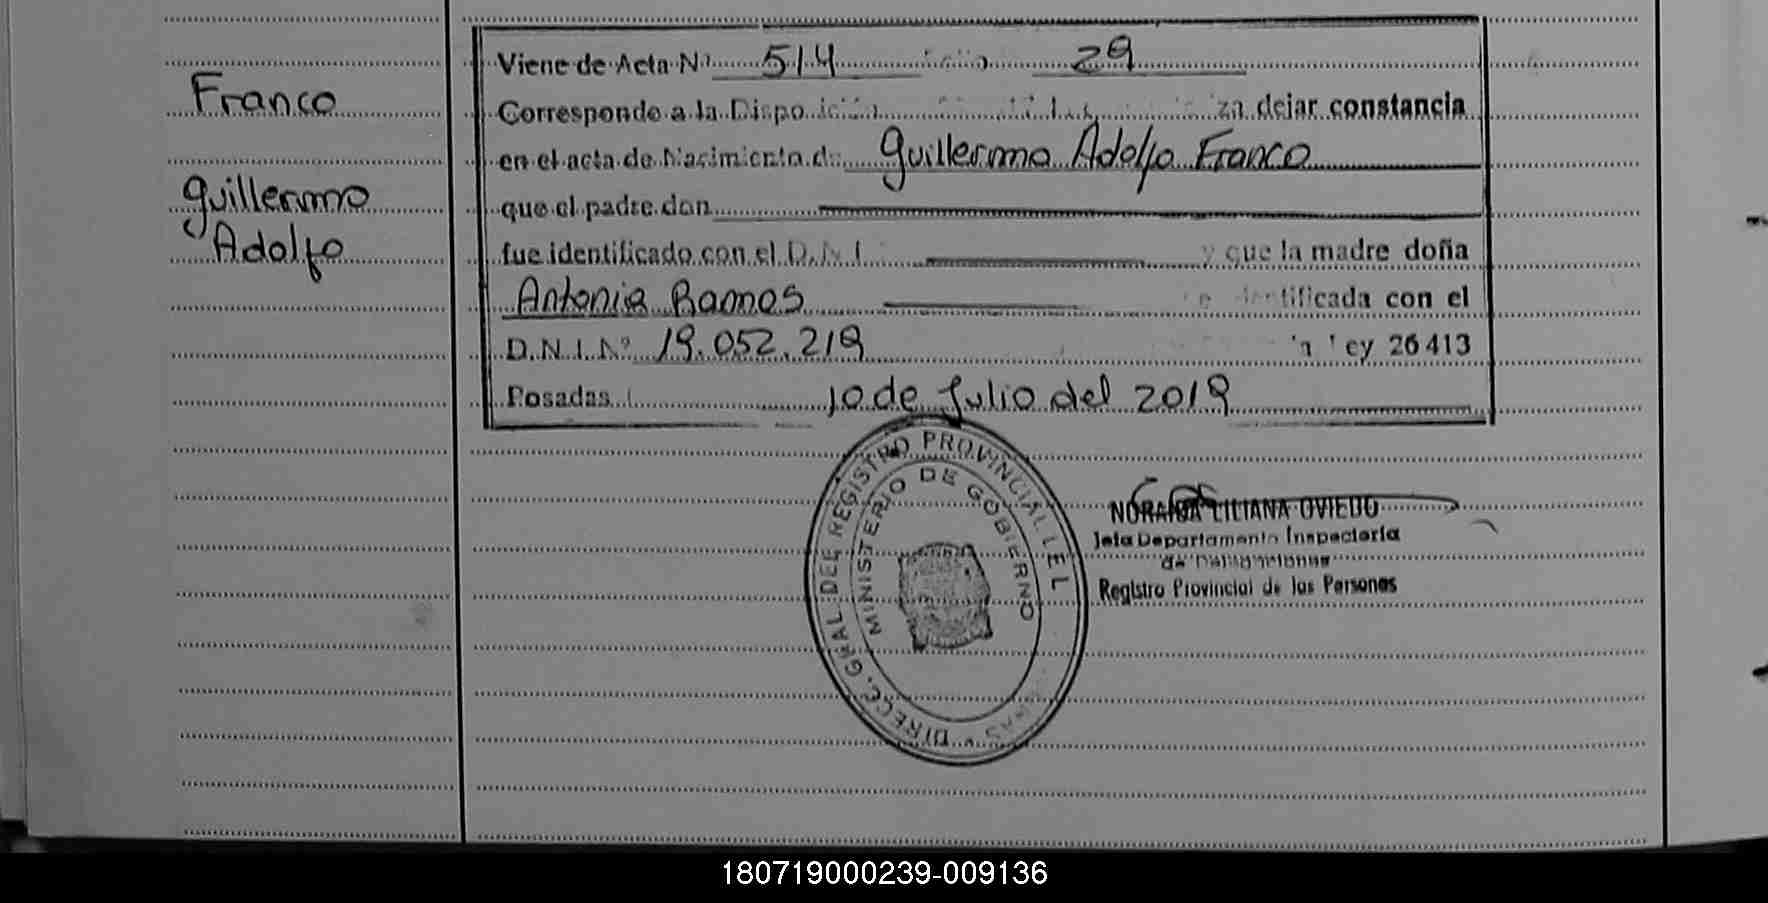 Franco
Guillermo
Adolfo
Viene de Acta Nº 514 folio 29
Corresponde a la Disposición dejar constancia
en el acta de Nacimiento de Guillermo Adolfo Franco
que el padre don
fue identificado con el D.N.I. y que la madre doña
Antonia Ramos identificada con el
D.N.I. Nº 19.052.219 Ley 26413
Posadas 10 de Julio del 2019
DIRECC. GRAL DEL REGISTRO PROVINCIAL
MINISTERIO DE GOBIERNO
NORAIDA LILIANA OVIEDO
Jefa Departamento Inspectoría
de Delegaciones
Registro Provincial de las Personas
180719000239-009136